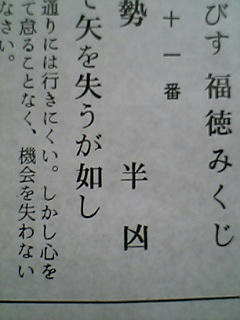 びす 福徳みくじ
十一番
勢 半凶
て矢を失うが如し
通りには行きにくい。しかし心を
て怠ることなく、機会を失わない
なさい。